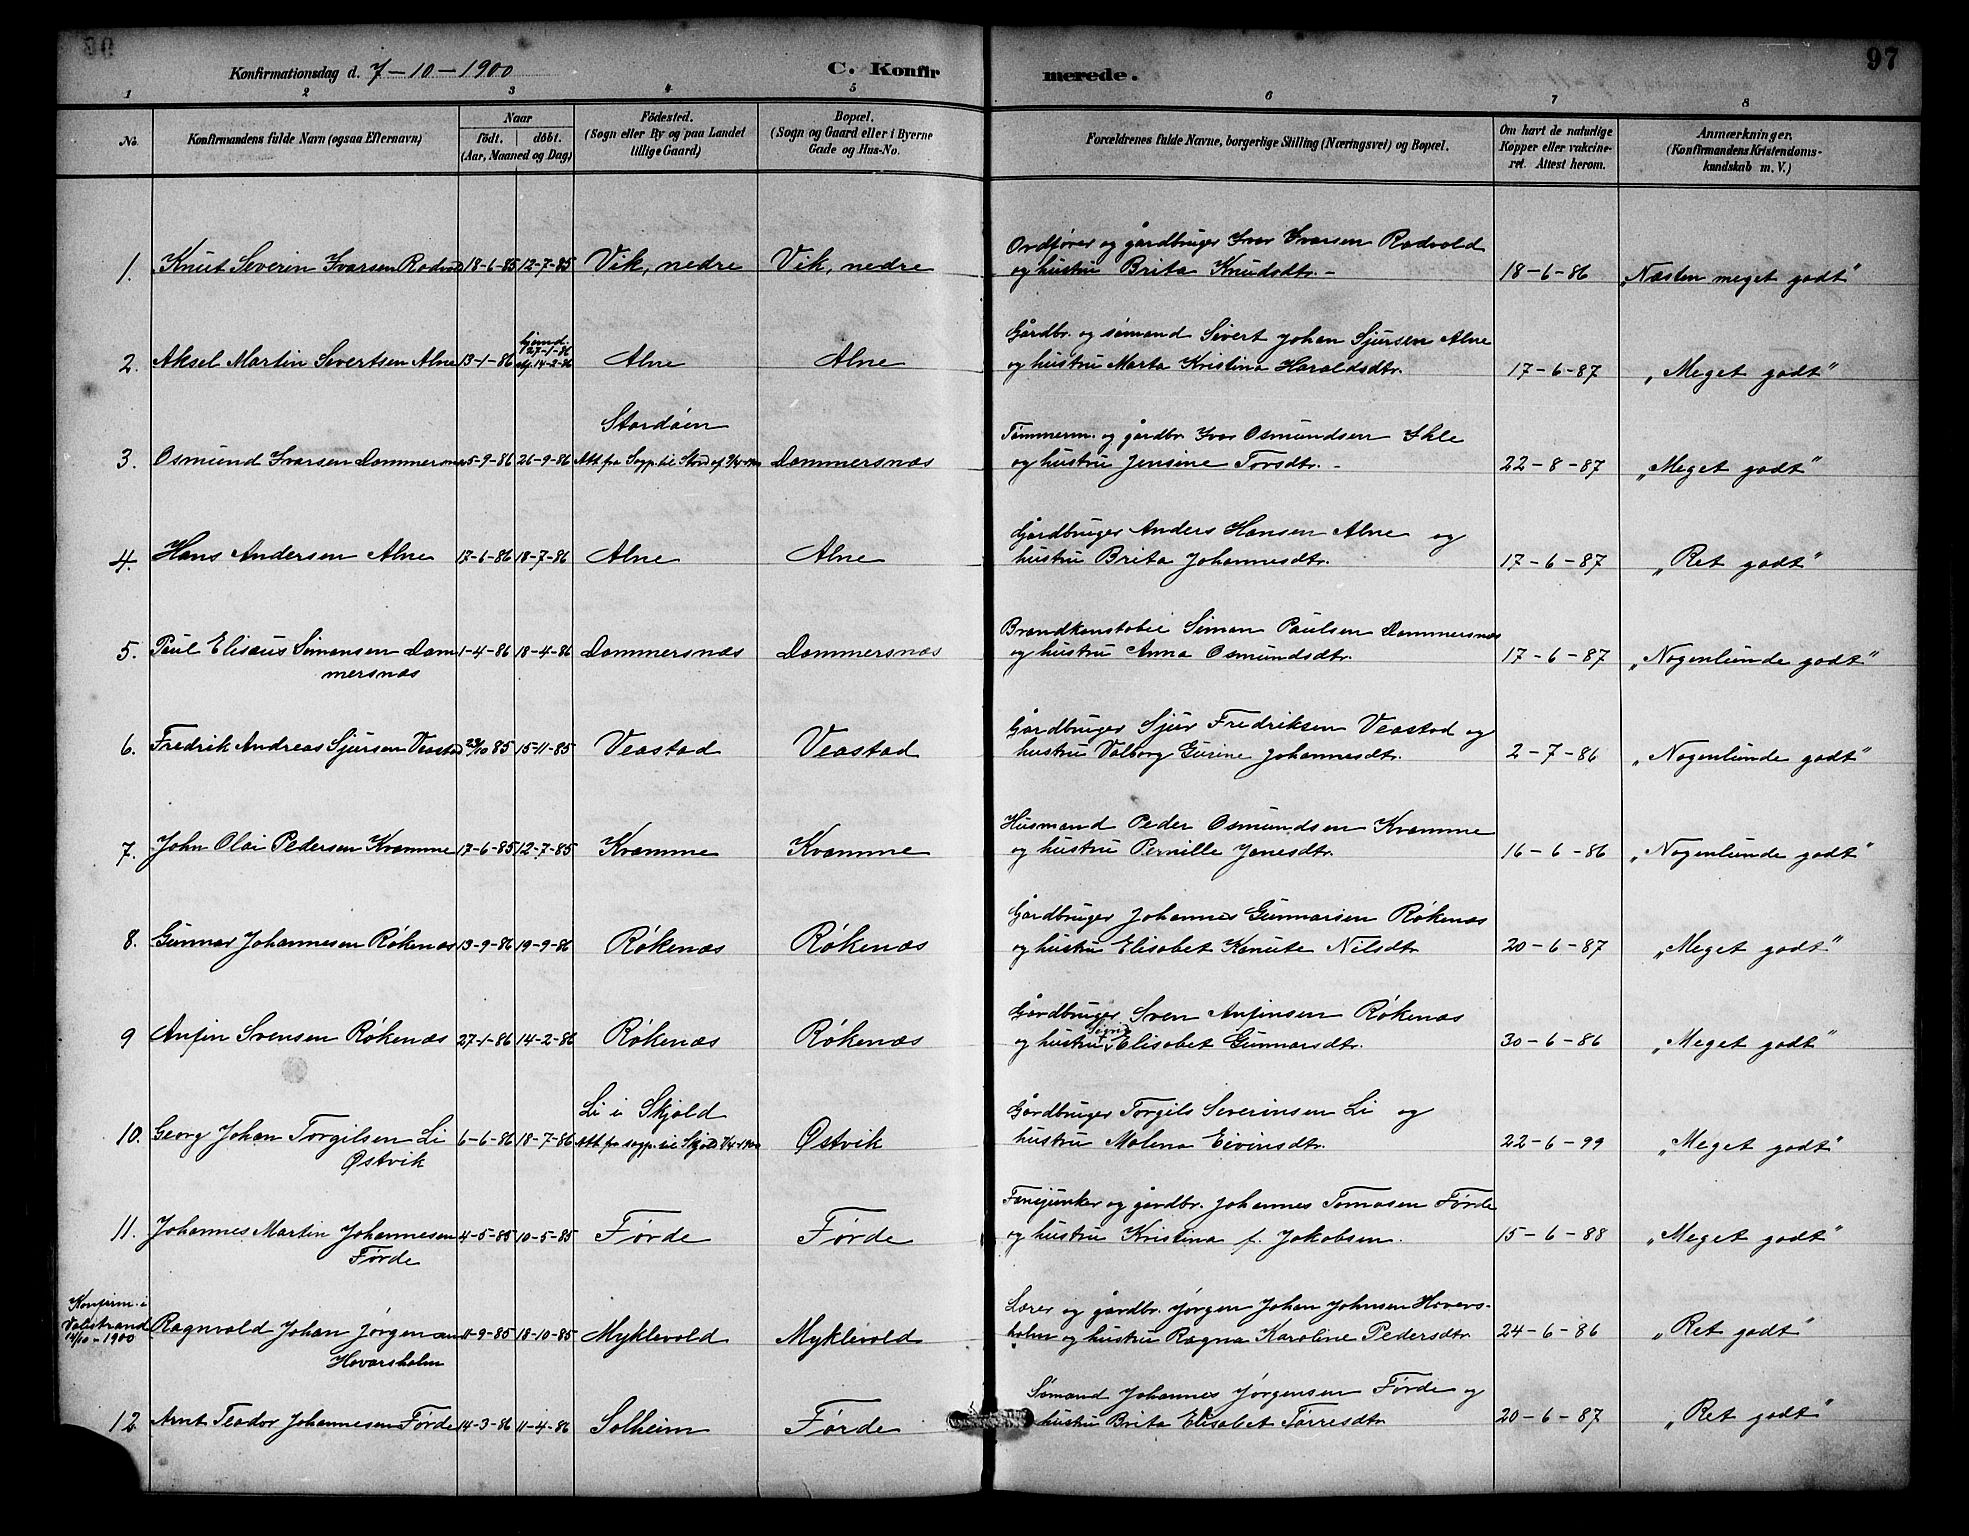 97
Konfirmationsdag d. 7-10-1900
C. Konfirmerede.
1 2 3 4 5 6 7 8
No. Konfirmandens fulde Navn (ogsaa Efternavn) Naar født. døbt. (Aar, Maaned og Dag) Fødested. (Sogn eller By og paa Landet tillige Gaard) Bopæl. (Sogn og Gaard eller i Byerne Gade og Hus-No. Forældrenes fulde Navne, borgerlige Stilling (Næringsvei) og Bopæl. Om havt de naturlige Kopper eller vakcineret. Attest herom. Anmærkninger. (Konfirmandens Kristendomskundskab m. V.)
1. Knut Severin Ivarsen Rødvold 18-6-85 12-7-85 Vik, nedre Vik, nedre Ordfører og gårdbruger Ivar Ivarsen Rødvold
og hustru Brita Knudsdtr. - 18-6-86 "Næsten meget godt"
2. Aksel Martin Severtsen Alne 13-1-86 hjemd. 27-1-86 14-2-86 Alne Alne Gårdbr. og sømand Sivert Johan Sjursen Alne
og hustru Marta Kristina Haraldsdtr. 17-6-87 "Meget godt"
3. Osmund Ivarsen Dommersnæs 5-9-86 26-9-86 Stordøen Att. fra Sogp. til Stord Dommersnæs Tømmerm. og gårdbr. Ivar Osmundsen Ihle
og hustru Jensine Torsdtr. - 22-8-87 "Meget godt"
4. Hans Andersen Alne 17-6-86 18-7-86 Alne Alne Gårdbruger Anders Hansen Alne og
hustru Brita Johannesdtr. 17-6-87 "Ret godt"
5. Paul Elisæus Simonsen Dom
mersnæs 1-4-86 18-4-86 Dommersnæs Dommersnæs Brandkonstabel Simon Paulsen Dommersnæs
og hustru Anna Osmundsdtr. 17-6-87 "Nogenlunde godt"
6. Fredrik Andreas Sjursen Veastad 23/10 85 15-11-85 Veastad Veastad Gårdbruger Sjur Fredriksen Veastad og
hustru Valborg Gurine Johannesdtr. 2-7-86 "Nogenlunde godt"
7. John Olai Pedersen Kvamme 17-6-85 12-7-85 Kvamme Kvamme Husmand Peder Osmundsen Kvamme
og hustru Pernille Jonesdtr. 16-6-86 "Nogenlunde godt"
8. Gunnar Johannesen Røkenæs 13-9-86 19-9-86 Røkenæs Røkenæs Gårdbruger Johannes Gunnarsen Røkenæs
og hustru Elisabet Kanute Nilsdtr 20-6-87 "Meget godt"
9 Anfin Svensen Røkenæs 27-1-86 14-2-86 Røkenæs Røkenæs Gårdbruger Sven Anfinsen Røkenæs
og hustru Sigrid Elisabet Gunnarsdtr. 30-6-86 "Meget godt"
10. Georg Johan Torgilsen Li
Østvik 6-6-86 18-7-86 Li i Skjold Att. fra sogp. til Skjold Østvik Gårdbruger Torgils Severinsen Li og
hustru Malena Eivinsdtr. 22-6-99 "Meget godt"
11. Johannes Martin Johannesen
Førde 4-5-85 10-5-85 Førde Førde Fanejunker og gårdbr. Johannes Tomasen Førde
og hustru Kristina f. Jakobsen. 15-6-88 "Meget godt"
Konfirm. i
Valestrand
14/10-1900 Ragnvald Johan Jørgensen
Hovarsholm 11-9-85 18-10-85 Myklevold Myklevold Lærer og gårdbr. Jørgen Johan Johnsen Hovers-
holm og hustru Ragna Karoline Pedersdtr. 24-6-86 "Ret godt"
12 Arnt Teodor Johannesen Førde 14-3-86 11-4-86 Solheim Førde Sømand Johannes Jørgensen Førde og
hustru Brita Elisabet Tørresdtr 20-6-87 "Ret godt"